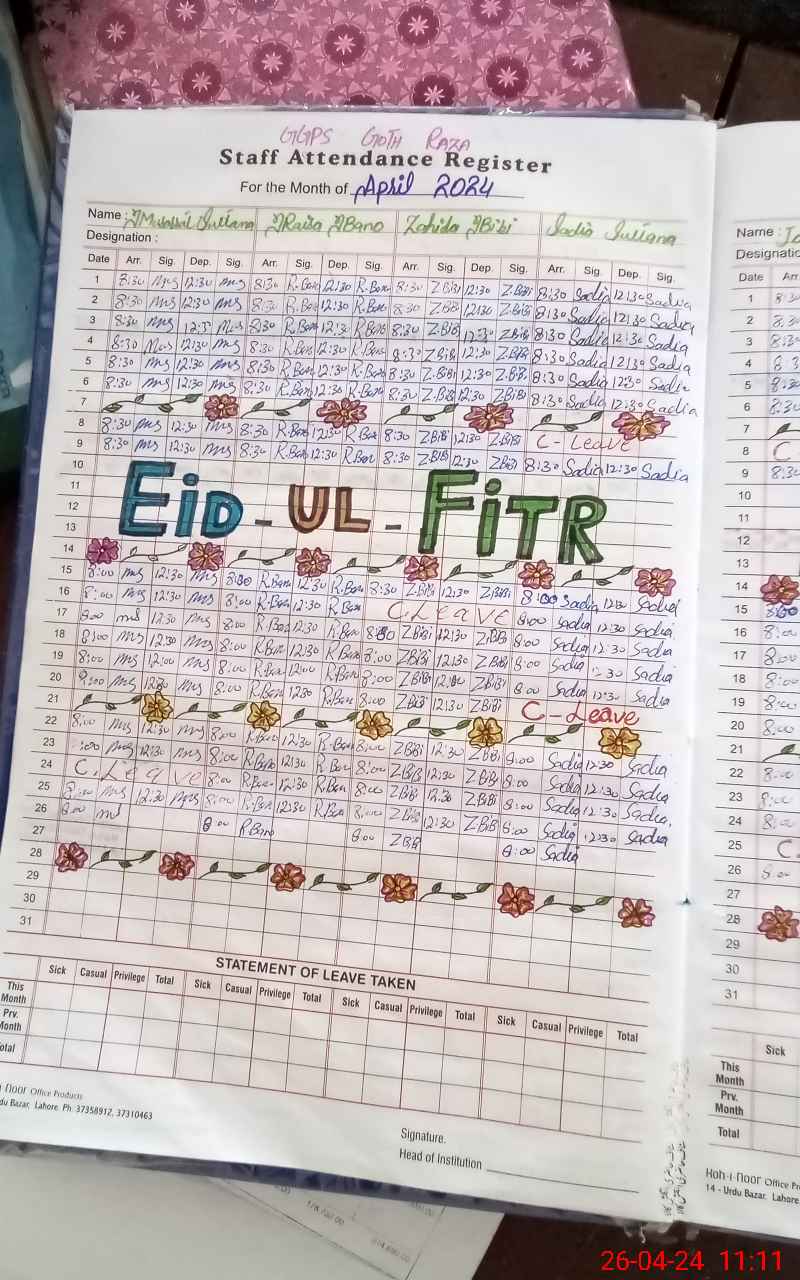 GGPS GOTH RAZA
Staff Attendance Register
For the Month of April 2024
Name : Sultana Raisa Bano Zahida Bibi Sadia Sultana
Designation :
Date Arr. Sig. Dep. Sig. Arr. Sig. Dep. Sig. Arr. Sig. Dep. Sig. Arr. Sig. Dep. Sig.
1 8:30 MS 12:30 MS 8:30 R.Bano 12:30 R.Bano 8:30 Z.BiBi 12:30 Z.BiBi 8:30 Sadia 12:30 Sadia
2 8:30 MS 12:30 MS 8:30 R.Bano 12:30 R.Bano 8:30 Z.BiBi 12:30 Z.BiBi 8:30 Sadia 12:30 Sadia
3 8:30 MS 8:30 R.Bano 12:30 R.Bano 8:30 Z.BiBi 12:30 Z.BiBi 8:30 Sadia 12:30 Sadia
4 8:30 12:30 MS 8:30 R.Bano 12:30 R.Bano 8:30 Z.BiBi 12:30 Z.BiBi 8:30 Sadia 12:30 Sadia
5 8:30 MS 12:30 MS 8:30 R.Bano 12:30 R.Bano 8:30 Z.BiBi 12:30 Z.BiBi 8:30 Sadia 12:30 Sadia
6 8:30 MS 12:30 MS 8:30 R.Bano 12:30 R.Bano 8:30 Z.BiBi 12:30 Z.BiBi 8:30 Sadia 12:30 Sadia
7
8 8:30 MS 12:30 MS 8:30 R.Bano 12:30 R.Bano 8:30 Z.BiBi 12:30 Z.BiBi C-Leave
9 8:30 MS 12:30 MS 8:30 R.Bano 12:30 R.Bano 8:30 Z.BiBi 12:30 Z.BiBi 8:30 Sadia 12:30 Sadia
10
11
12 EiD-UL-FiTR
13
14
15 8:00 MS 12:30 MS 8:00 R.Bano 12:30 R.Bano 8:30 Z.BiBi 12:30 Z.BiBi 8:00 Sadia 12:30 Sadia
16 8:00 MS 12:30 MS 8:00 R.Bano 12:30 R.Bano C.Leave 8:00 Sadia 12:30 Sadia
17 8:00 MS 12:30 MS 8:00 R.Bano 12:30 R.Bano 8:00 Z.BiBi 12:30 Z.BiBi 8:00 Sadia 12:30 Sadia
18 8:00 MS 12:30 MS 8:00 R.Bano 12:30 R.Bano 8:00 Z.BiBi 12:30 Z.BiBi 8:00 Sadia 12:30 Sadia
19 8:00 MS 12:00 MS 8:00 R.Bano 12:00 R.Bano 8:00 Z.BiBi 12:00 Z.BiBi 8:00 Sadia 12:30 Sadia
20 8:00 MS 12:30 MS 8:00 R.Bano 12:30 R.Bano 8:00 Z.BiBi 12:30 Z.BiBi C-Leave
21
22 8:00 MS 12:30 MS 8:00 R.Bano 12:30 R.Bano 8:00 Z.BiBi 12:30 Z.BiBi 8:00 Sadia 12:30 Sadia
23 8:00 MS 12:30 MS 8:00 R.Bano 12:30 R.Bano 8:00 Z.BiBi 12:30 Z.BiBi 8:00 Sadia 12:30 Sadia
24 C.Leave 8:00 R.Bano 12:30 R.Bano 8:00 Z.BiBi 12:30 Z.BiBi 8:00 Sadia 12:30 Sadia
25 8:00 MS 12:30 MS 8:00 R.Bano 12:30 R.Bano 8:00 Z.BiBi 12:30 Z.BiBi 8:00 Sadia 12:30 Sadia
26 8:00 MS 8:00 R.Bano 8:00 Z.BiBi 8:00 Sadia
27
28
29
30
31
STATEMENT OF LEAVE TAKEN
Sick Casual Privilege Total Sick Casual Privilege Total Sick Casual Privilege Total Sick Casual Privilege Total
This Month
Prv. Month
Total
Office Products
Bazar, Lahore. Ph: 37358912, 37310463
Signature.
Head of Institution
Name :
Date Arr.
1
2
3
4
5
6
7
8 C
9
10
11
12
13
14
15
16 8:00
17 8:00
18 8:00
19 8:00
20 8:00
21
22 8:00
23 8:00
24 8:00
25 C.
26 8:00
27
28
29
30
31
Sick
This Month
Prv. Month
Total
Koh-i-noor Office
14 - Urdu Bazar, Lahore
26-04-24 11:11